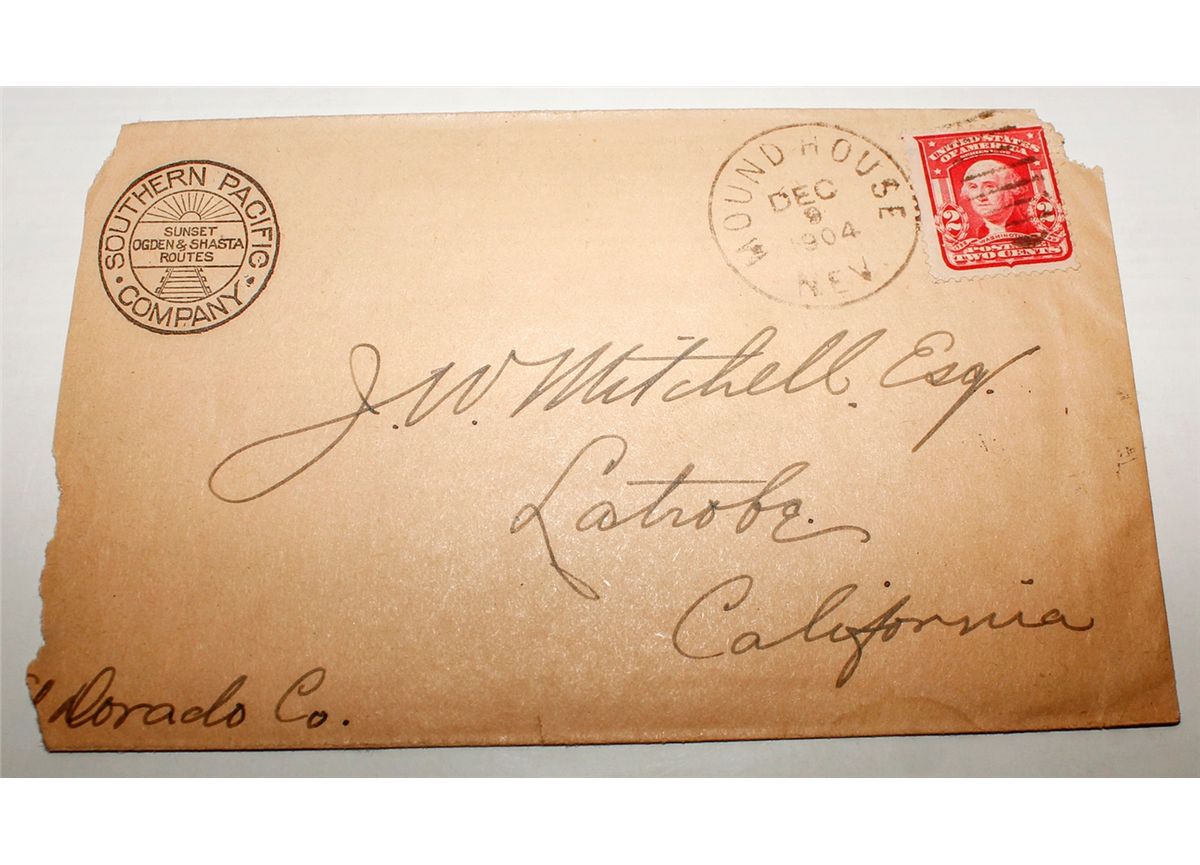 SOUTHERN PACIFIC
COMPANY
SUNSET
OGDEN & SHASTA
ROUTES
MOUND HOUSE
DEC
9
1904
NEV.
UNITED STATES
OF AMERICA
2 2
POSTAGE
TWO CENTS
J. W. Mitchell, Esq.
Latrobe
California
Dorado Co.